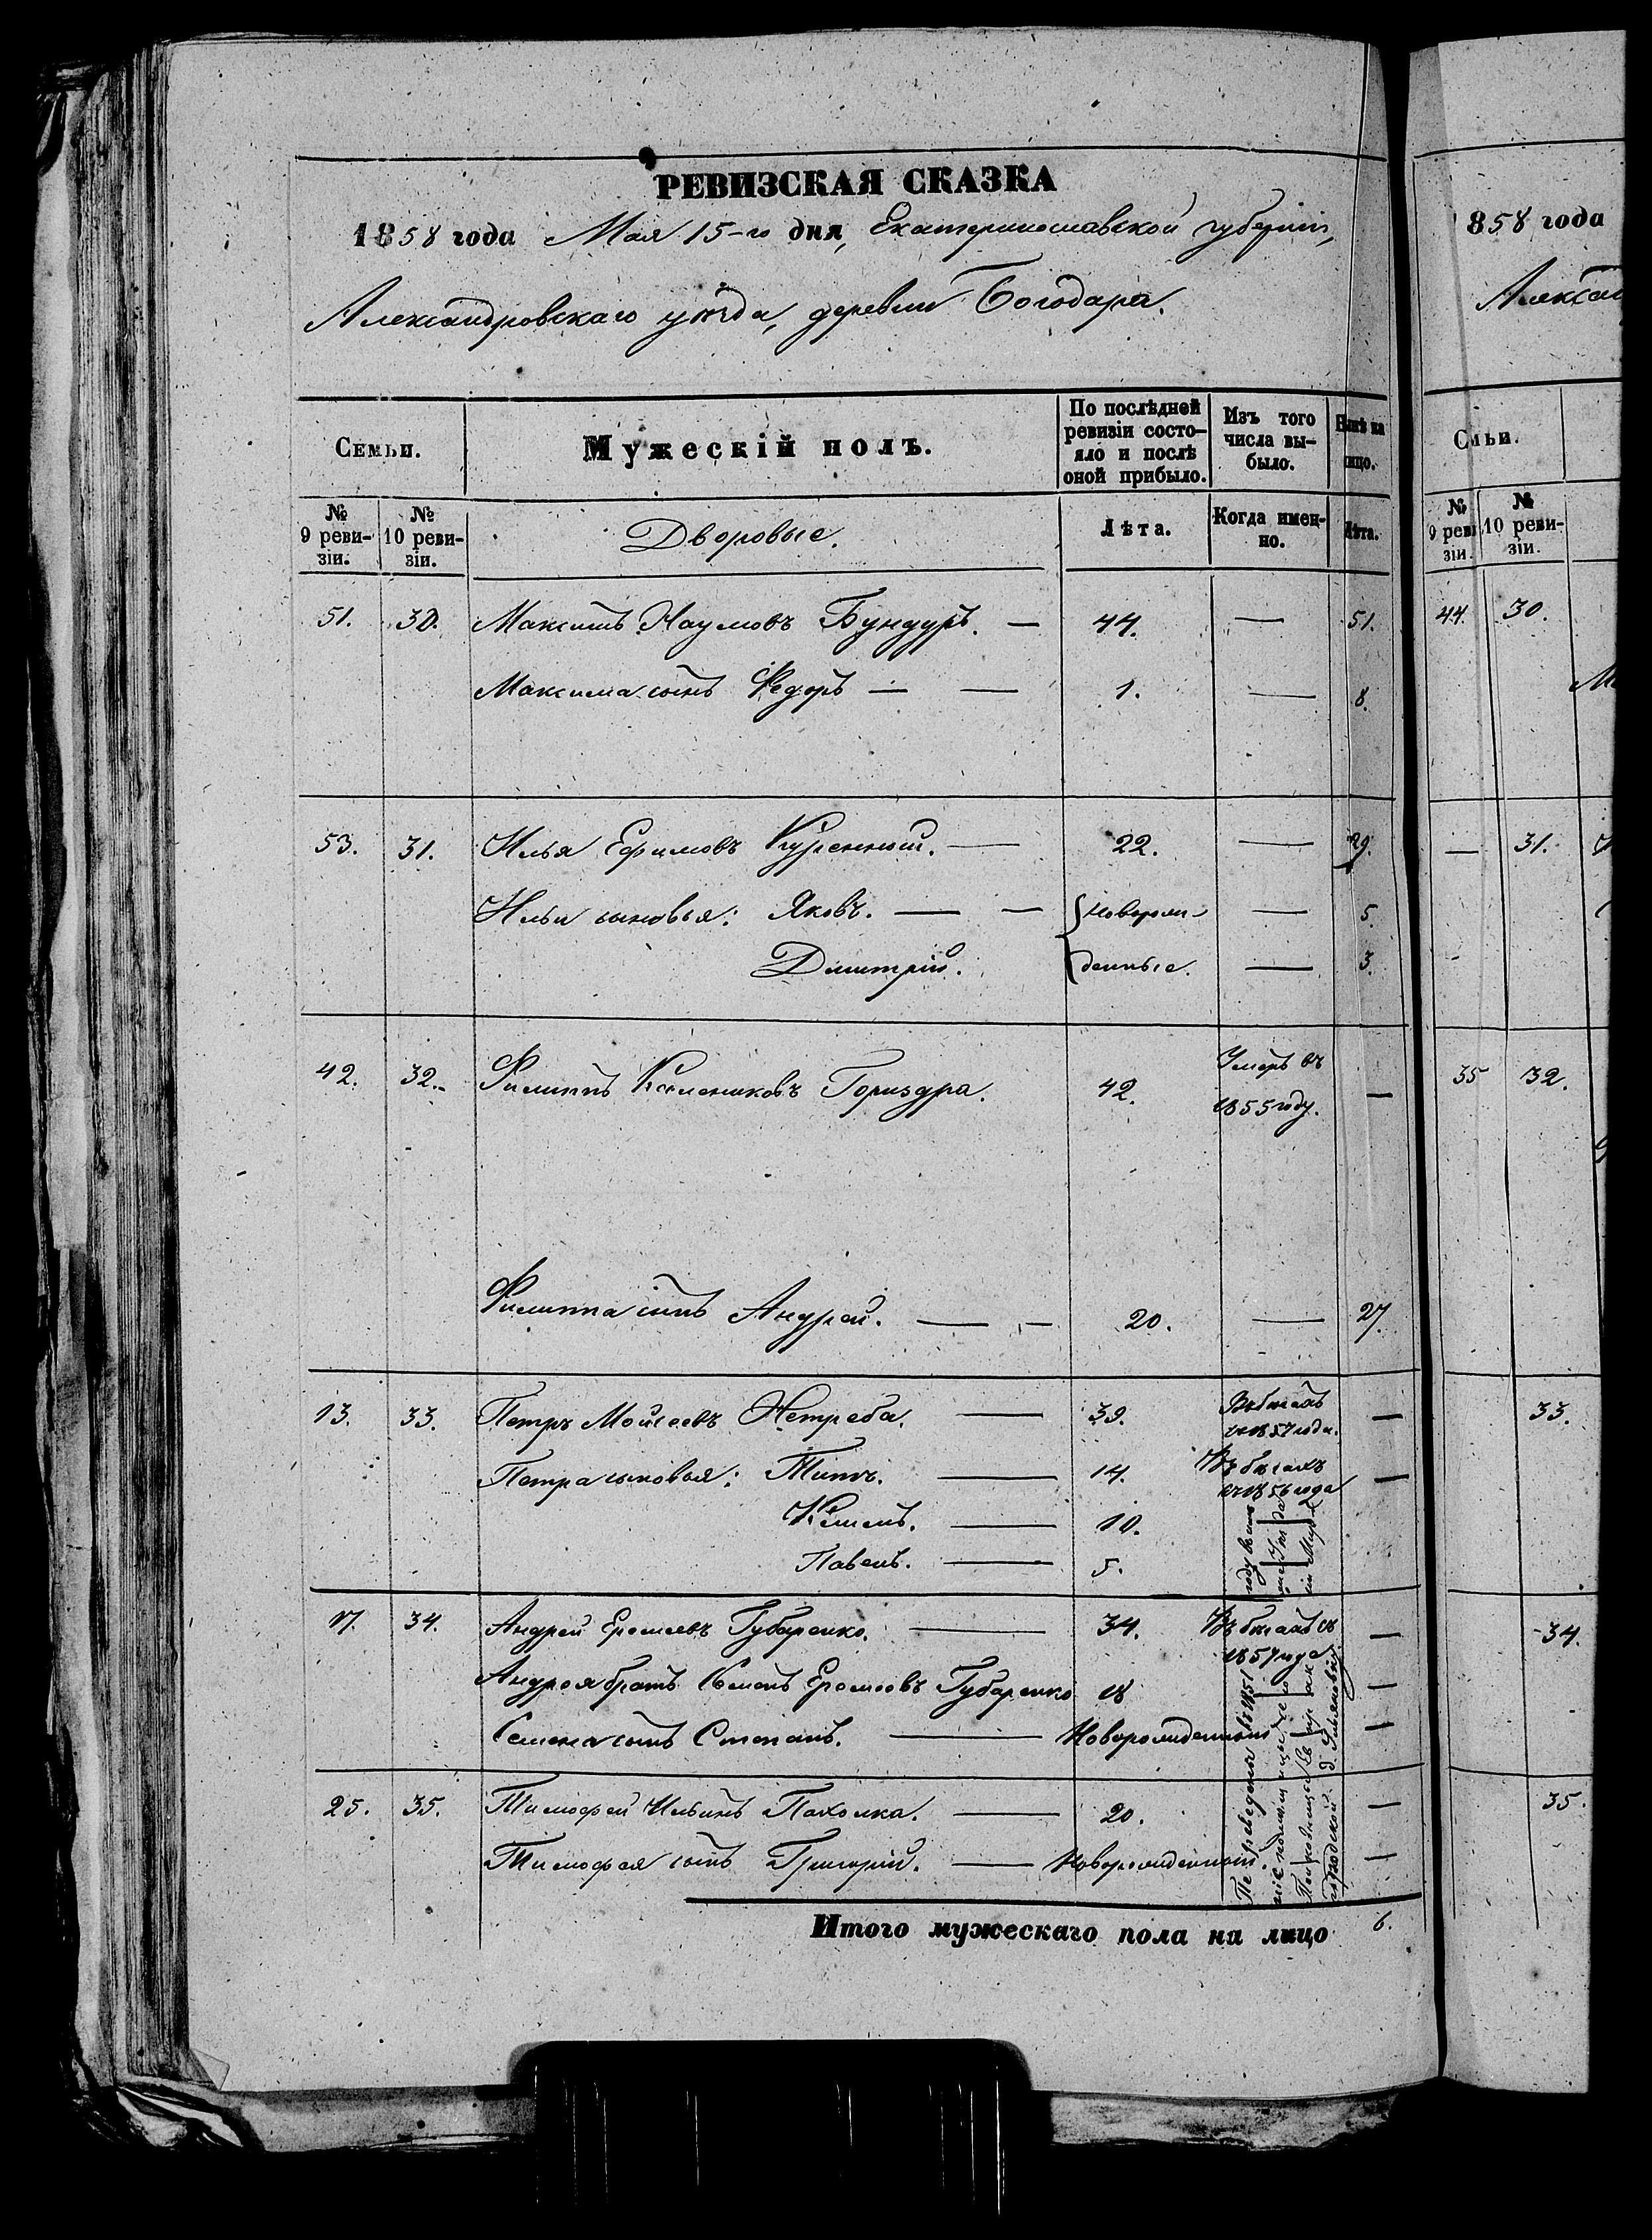 РЕВИЗСКАЯ СКАЗКА
1858 года Мая 15-го дня, Екатеринославской губерніи,
Александровскаго уѣзда, деревни Богодара.
Семьи.
Мужескій полъ.
По послѣдней ревизіи состояло и послѣ оной прибыло.
Изъ того числа выбыло.
Нынѣ на лицо.
№ 9 ревизіи.
№ 10 ревизіи.
Дворовые.
Лѣта.
Когда именно.
Лѣта.
51. 30. Максимъ Наумовъ Бундуръ. — 44. — 51.
Максима сынъ Федоръ — — 1. — 8.
53. 31. Илья Ефимовъ Куренной. — 22. — 29.
Ильи сыновья: Яковъ. — — новорож- — 5.
Дмитрій. денные. — 3.
42. 32. Филиппъ Гориздра. 42. Умеръ въ 1855 году. —
Филиппа сынъ Андрей. — — 20. — 27.
13. 33. Петръ Моисеевъ Нетреба. — 39. Въ бѣгахъ съ 1857 года. —
Петра сыновья: Титъ. — 14. Въ бѣгахъ съ 1856 года —
Семенъ. — 10.
Павелъ. — 5.
17. 34. Андрей Еремеевъ Губаренко. — 34. Въ бѣгахъ съ 1857 года —
Андрея братъ Семенъ Еремеевъ Губаренко 18 —
Семена сынъ Степанъ. — Новорожденный —
25. 35. Тимофей Ильинъ Пахолка. — 20. —
Тимофея сынъ Григорій. — Новорожденный. —
Переведены въ 1851 году
Итого мужескаго пола на лицо 6.
1858 года
Алексан
Семьи.
№ 9 реви зіи.
№ 10 ревизіи.
44. 30.
— 31.
35 32.
33.
34.
35.